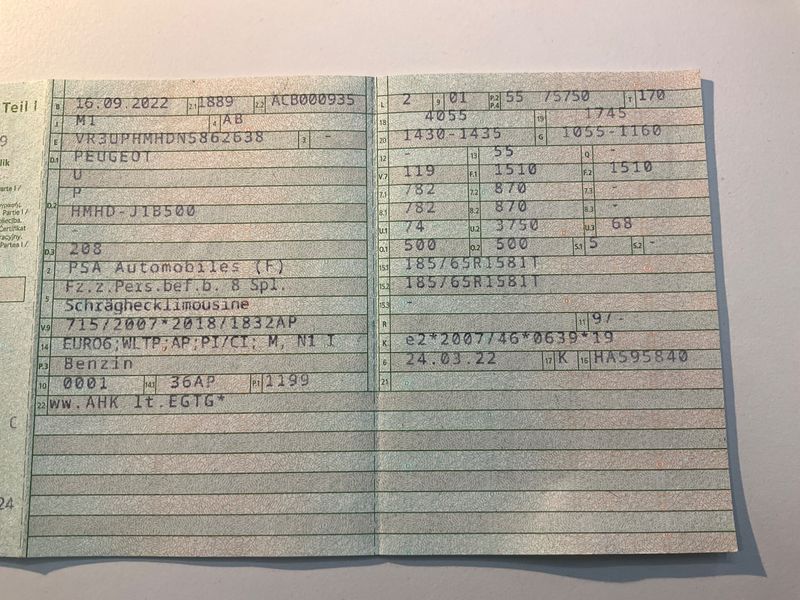 Teil I
9
lik
C
24
B 16.09.2022 2.1 1889 2.2 ACB000935
J M1 4 AB
E VR3UPHMHDN5862638 3 -
D.1 PEUGEOT
U
P
D.2 HMHD-J1B500
-
D.3 208
2 PSA Automobiles (F)
Fz.z.Pers.bef.b. 8 Spl.
5 Schräghecklimousine
V.9 715/2007*2018/1832AP
14 EURO6;WLTP;AP;PI/CI; M, N1 I
P.3 Benzin
10 0001 14.1 36AP P.1 1199
22 ww.AHK lt.EGTG*
L 2 9 01 P.2 P.4 55 /5750 T 170
18 4055 19 1745
20 1430-1435 G 1055-1160
12 - 13 55 Q -
V.7 119 F.1 1510 F.2 1510
7.1 782 7.2 870 7.3 -
8.1 782 8.2 870 8.3 -
U.1 74 U.2 3750 U.3 68
O.1 500 O.2 500 S.1 5 S.2 -
15.1 185/65R1581T
15.2 185/65R1581T
15.3 -
R 11 9/-
K e2*2007/46*0639*19
6 24.03.22 17 K 16 HA595840
21